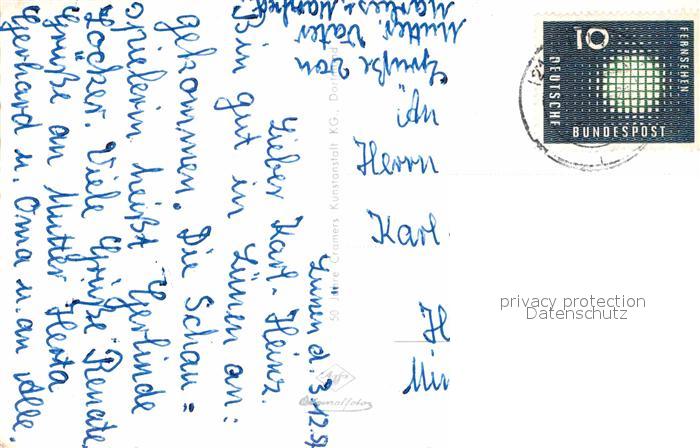 Lünen d. 3.12.5
Lieber Karl-Heinz.
Bin gut in Lünen an:
gekommen. Die Schau =
spielerin heißt Gerlinde
Locker. Viele Grüße Renate
Grüße an Mutter Herta
Gerhard u. Oma u. an Alle.
Grüße von
Mutter, Vater
Marlies u. Manfred
An
Herrn
Karl.
H
50 Jahre Cramers Kunstanstalt KG., Dortmund
Agfa
Originalfoto
10
FERNSEHEN
DEUTSCHE
BUNDESPOST
privacy protection
Datenschutz